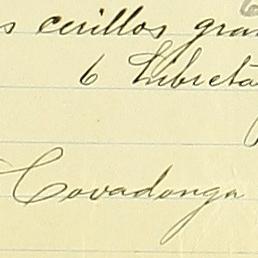 s cirillos gran
6 Libreta
Covadonga